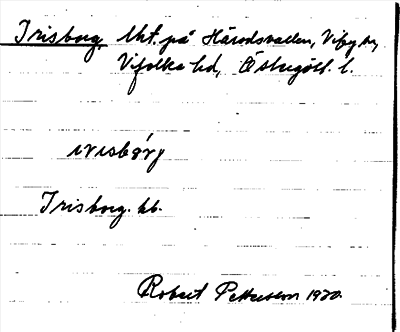 Irisborg, lht. på Häradsvallen, Viby sn,
Vifolka hd, Östergötl. l.
irisbårj
Irisborg. hb.
Robert Pettersson 1920.